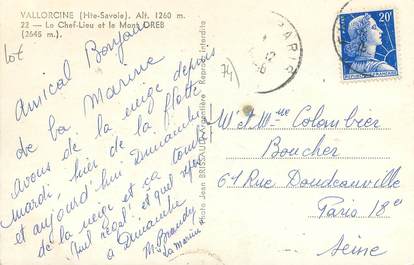 VALLORCINE (Hte-Savoie). Alt. 1260 m.
22 — Le Chef-Lieu et le Mont OREB
(2645 m.)
lot
Amical Bonjour
de la Marine
avons de la neige depuis
mardi, hier de la flotte
et aujourd'hui Dimanche
de la neige et ça tombe
quel régal! et quel
a Dimanche
M. 
La Marine
Photo Jean BRISSAUD, Reprod. Interdite
74)
PARIS
20F
M et Mme Colombier
Boucher
61 Rue Doudeauville
Paris 18e
Seine